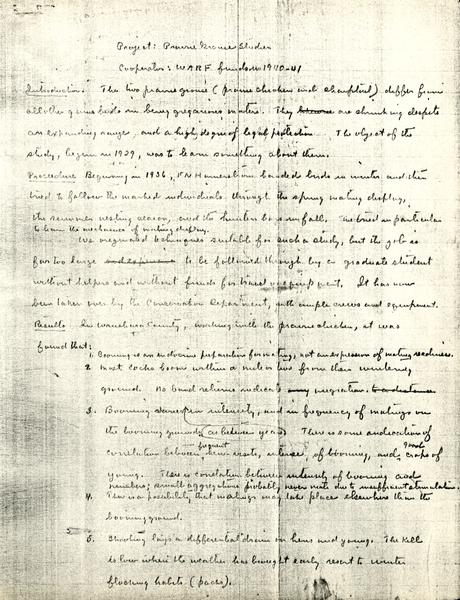 Project: Prairie Grouse Studies
Cooperator: WARF funds in 1940-41
Introduction: The two prairie grouse (prairie chicken and sharptail) differ from
all other game birds in being gregarious in winter. They are shrinking despite
an expanding range, and a high degree of legal protection. The object of the
study, begun in 1929, was to learn something about them.
Procedure Beginning in 1936, F.N. Hamerstrom banded birds in winter and then
tried to follow the marked individuals through the spring mating display,
the summer nesting season, and the hunters bag in fall. We tried in particular
to learn the mechanics of mating display.
We originated techniques suitable for such a study, but the job is
far too large to be followed through by a graduate student
without helpers and without funds for travel equipment. It has now
been taken over by the Conservation Department, with ample crews and equipment.
Results In Waushara County, working with the prairie chicken, it was
found that:
1. Booming is an endocrine preparation for mating, not an expression of mating readiness.
2. Most cocks boom within a mile or two from their wintering
ground. No band returns indicate any migration to a distance
3. Booming varies in intensity, and in frequency of matings on
the booming grounds, as between years. There is some indication of
correlation between hen visits, intense, of booming, and good crops of
frequent
young. There is correlation between intensity of booming and
numbers; small aggregations probably never mate due to insufficient stimulation.
4. There is a possibility that matings may take place elsewhere than the
booming ground.
5. Shooting lays a differential drain on hens and young. The kill
is low when the weather has brought early resort to winter
flocking habits (packs).